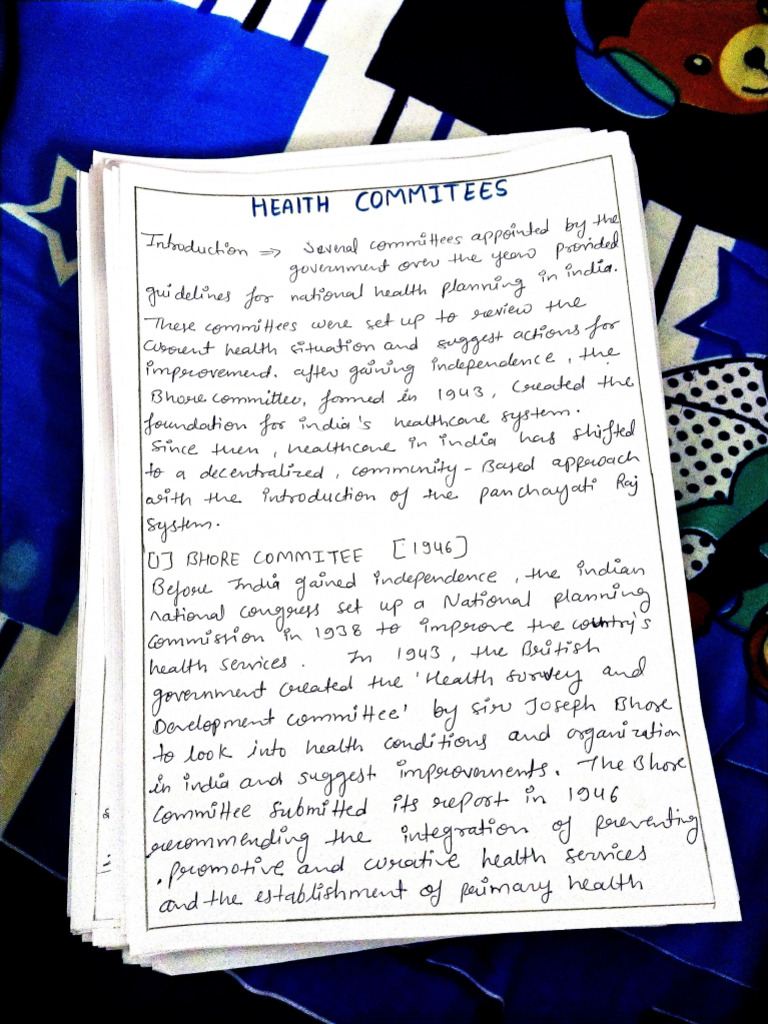 HEALTH COMMITEES
Introduction ⇒ Several committees appointed by the
government over the years provided
guidelines for national health planning in india.
These committees were set up to review the
current health situation and suggest actions for
improvement. after gaining independence, the
Bhore committee, formed in 1943, Created the
foundation for india's healthcare system.
Since then, healthcare in india has shifted
to a decentralized, community-Based approach
with the introduction of the panchayati Raj
System.
[1] BHORE COMMITEE [1946]
Before India gained independence, the indian
national congress set up a National planning
Commission in 1938 to improve the country's
health services. In 1943, the British
government created the 'Health survey and
Development committee' by sir Joseph Bhore
to look into health conditions and organization
in india and suggest improvements. The Bhore
Committee Submitted its report in 1946
recommending the integration of preventing
, promotive and curative health services
and the establishment of primary health